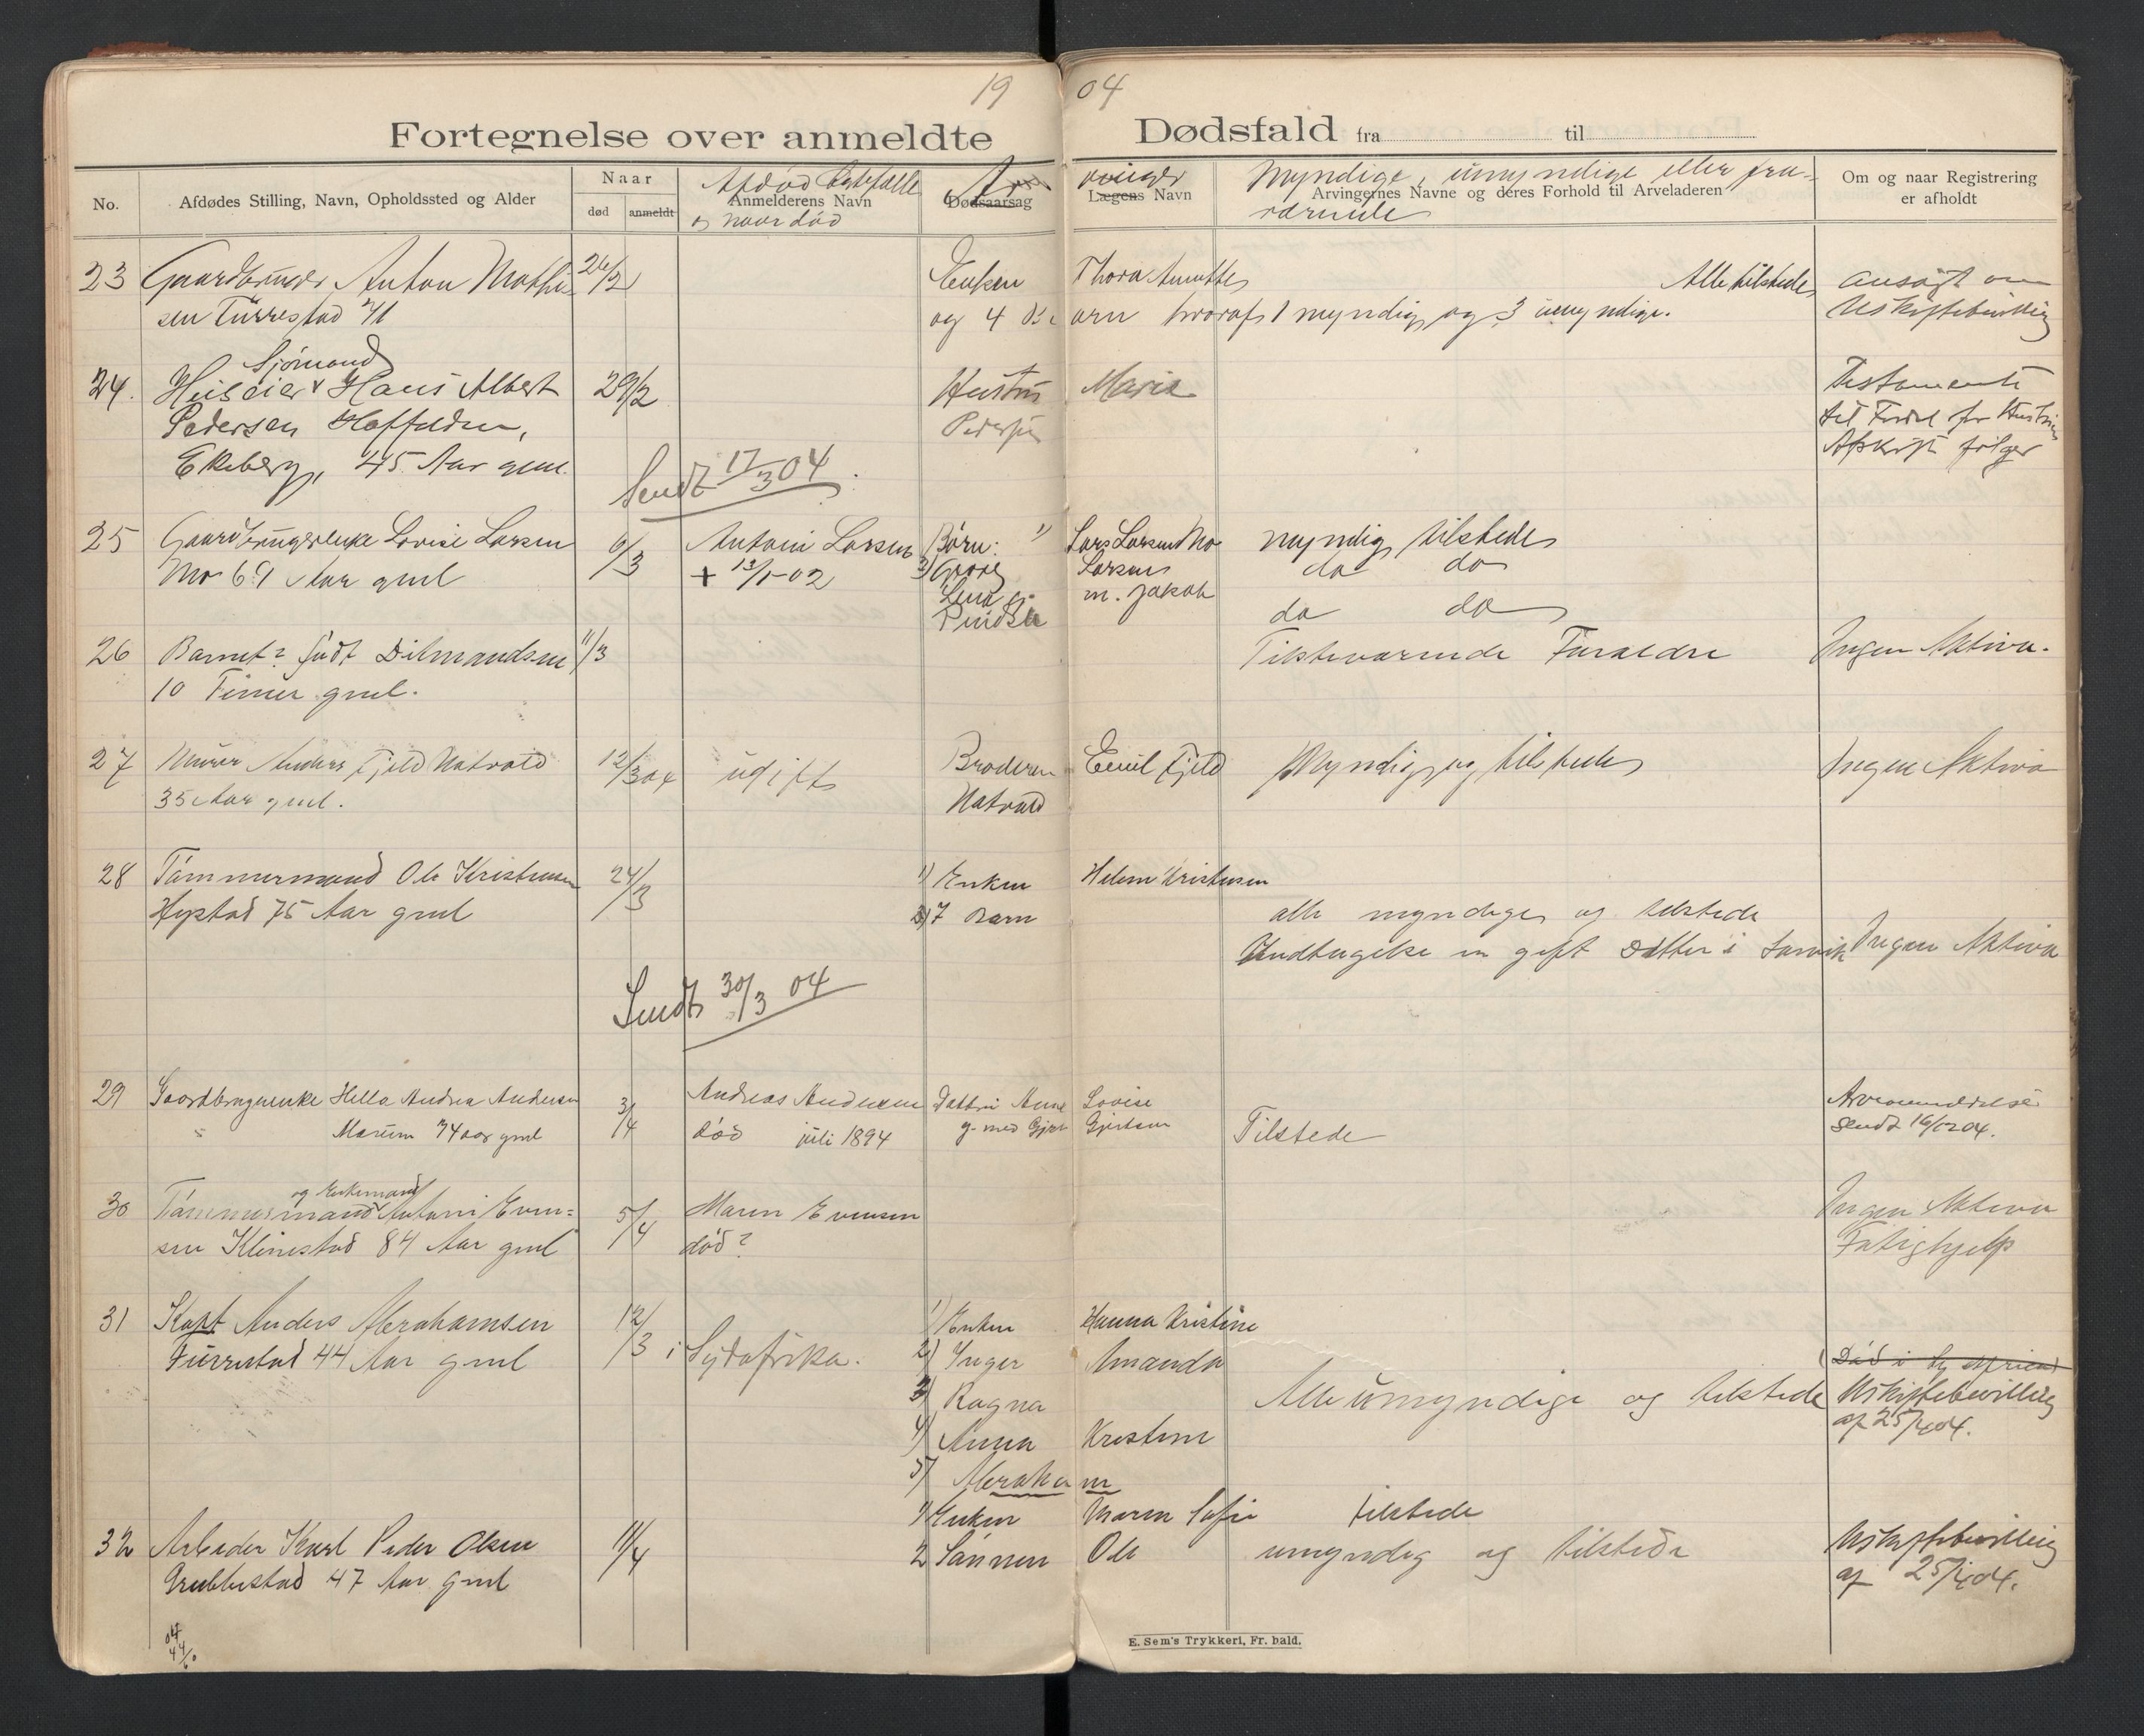 1904
Fortegnelse over anmeldte Dødsfald fra til
No.
Afdødes Stilling, Navn, Opholdssted og Alder
Naar
død
anmeldt
Afdød
Anmelderens Navn
og naar død
Dødsaarsag
Arvinger
Lægens Navn
Myndige, umyndige eller fra-
Arvingernes Navne og deres Forhold til Arveladeren
værende
Om og naar Registrering
er afholdt
23 Gaardbruger Anton Mathi- 26/2 Enken Thora Alle tilstede ansøgt om
sen Furrestad 41 og 4 Børn hvoraf 1 myndig og 3 umyndige. Uskiftebevilling
Sjømand
24. Huseier Hans Albert 29/2 Hustru Marie Testamente
Pedersen Haffelden, Pedersen til Fordel for Hustruen
Ekeberg, 45 Aar gml. Afskrift følger
Sendt 17/3 04
25 Gaardbrugerenke Lovise Larsen 6/3 Antoni Larsen Børn: 1) Lars Larsen Mo myndig tilstede
Mo 69 Aar gml + 13/1-02 Larsen do do
Lena m. Jakob
do do
26 Barnet? født Ditmandsen 11/3 Tilsteværende Foraldre Ingen Aktiva.
10 Timer gml.
27 Murer Anders Fjeld Natvald 12/3 04 ugift Broderen Emil Fjeld Myndig og tilstede Ingen Aktiva
35 Aar gml. Natvald
28 Tømmermand Ole Kristensen 24/3 1) Enken Helene Kristensen
Hystad 75 Aar gml 2) 7 Børn alle myndige og tilstede
Undtagelse en gift Datter i Larvik Ingen Aktiva
Sendt 30/3 04
29 Gaardbrugerenke Hella Andrea Andersen 3/4 Andreas Andersen Datter Anne Lovise Arveanmeldelse
Marum 74 aar gml død juli 1894 g. med Gjert Gjertsen Tilstede sendt 16/12 04.
og Enkemand
30 Tømmermand Antoni Even= 5/4 Maren Evensen Ingen Aktiva
sen Klinestad 84 Aar gml død? Fatighjelp
31 Kapt Anders Abrahamsen 12/3 i Sydafrika. 1) Enken Hanna Kristine
Furrestad 44 Aar gml 2) Inger Amanda (Død i Syd Africa)
3) Ragna Alle umyndige og tilstede Uskiftebevilling
4) Anna Kristine af 25/4 04.
5) Abraham
1) Enken Maren Sofie tilstede
32 Arbeider Karl Peder Olsen 11/4 2 Sønnen Ole umyndig og tilstede Uskiftebevilling
Grubbestad 47 Aar gml af 25/4 04.
E. Sem's Trykkeri, Fr. hald.